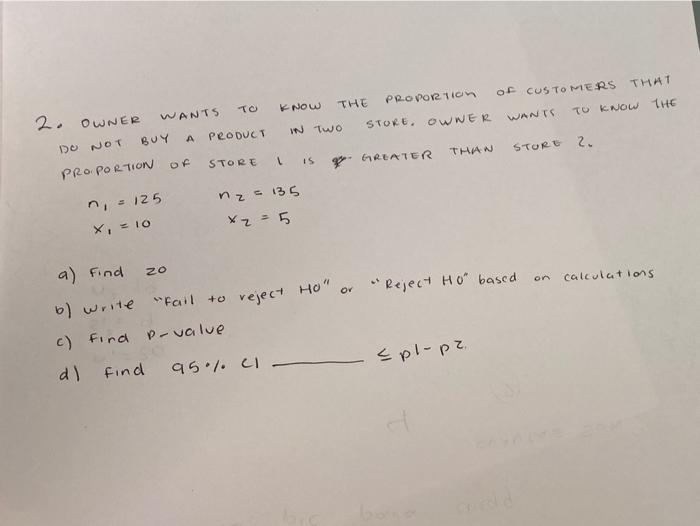 2. OWNER WANTS TO KNOW THE PROPORTION OF CUSTOMERS THAT
DO NOT BUY A PRODUCT IN TWO STORE. OWNER WANTS TO KNOW THE
PROPORTION OF STORE 1 IS GREATER THAN STORE 2.
n₁ = 125 n₂ = 135
x₁ = 10 x₂ = 5
a) Find z0
b) Write "Fail to reject H0" or "Reject H0" based on calculations
c) Find p-value
d) Find 95% CI ______ ≤ p1-p2.